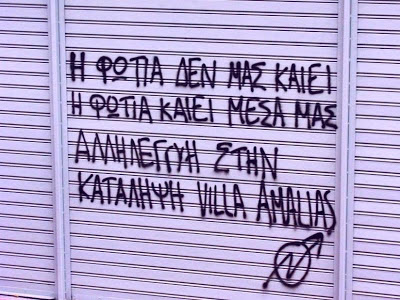 Η ΦΩΤΙΑ ΔΕΝ ΜΑΣ ΚΑΙΕΙ
Η ΦΩΤΙΑ ΚΑΙΕΙ ΜΕΣΑ ΜΑΣ
ΑΛΛΗΛΕΓΓΥΗ ΣΤΗΝ
ΚΑΤΑΛΗΨΗ VILLA AMALIAS